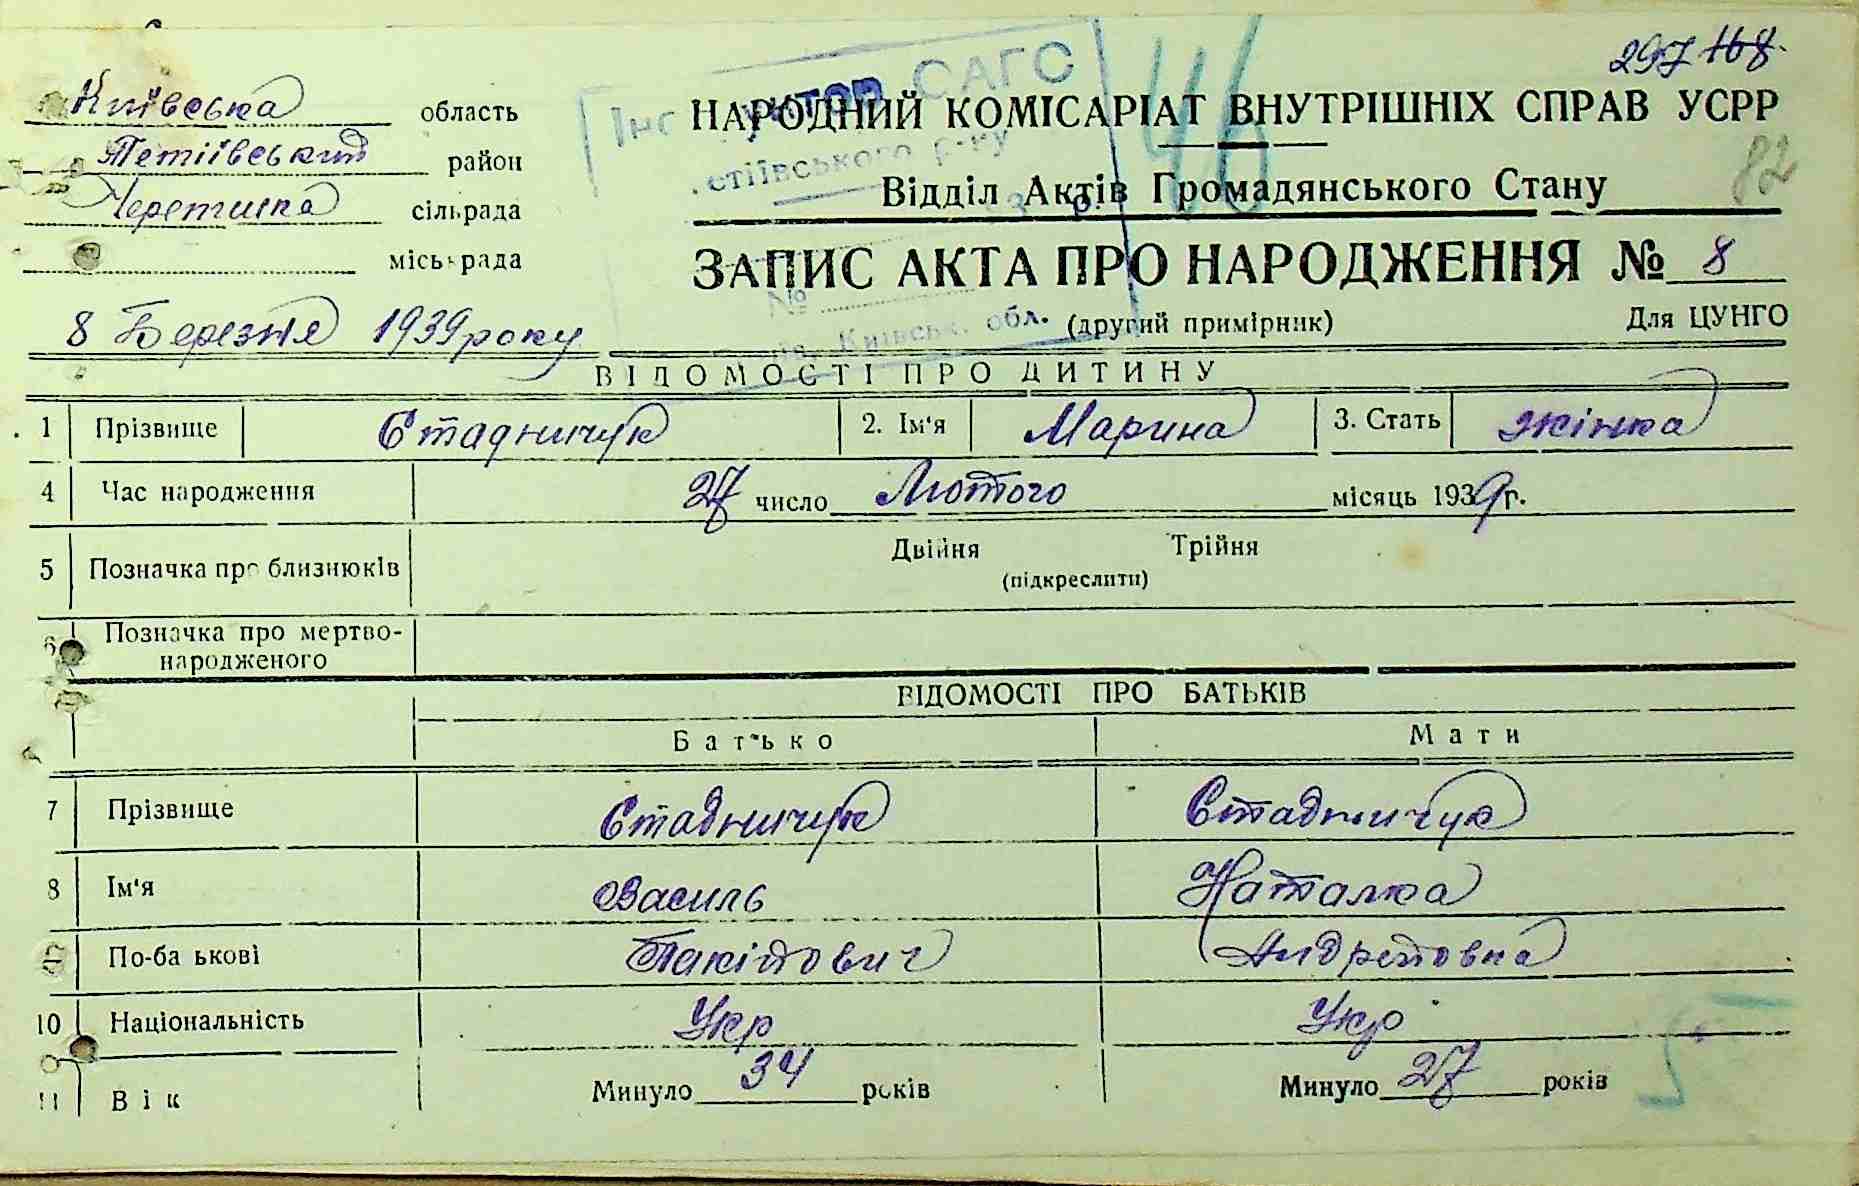 297 168
Київська область
Інс уктор САГС
46
НАРОДНИЙ КОМІСАРІАТ ВНУТРІШНІХ СПРАВ УСРР
Тетіївський район
етіївського р-ну
82
Черепинка сільрада
Відділ Актів Громадянського Стану
міськрада
ЗАПИС АКТА ПРО НАРОДЖЕННЯ № 8
№
8 Березня 1939 року
Київськ. обл.
(другий примірник) Для ЦУНГО
ВІДОМОСТІ ПРО ДИТИНУ
1 Прізвище Стадничук 2. Ім'я Марина 3. Стать жінка
4 Час народження 27 число Лютого місяць 1939 р.
5 Позначка про близнюків Двійня Трійня
(підкреслити)
6 Позначка про мертво-
народженого
ВІДОМОСТІ ПРО БАТЬКІВ
Батько Мати
7 Прізвище Стадничук Стадничук
8 Ім'я Василь Наталка
По-ба ькові Андрейовна
10 Національність Укр Укр
11 Вік Минуло 34 років Минуло 27 років